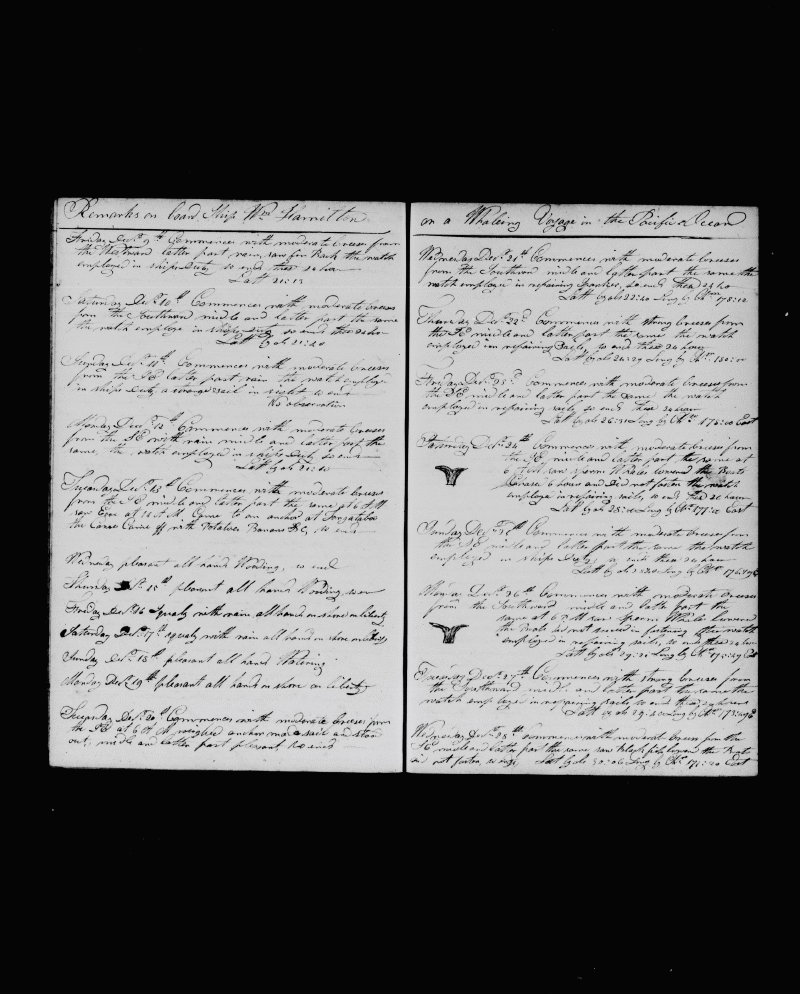 Remarks on board Ship Wm Hamilton
Friday Decr 9th Commences with moderate breeses from
the Westward latter part raw, saw fin Back the watch
employed in ships Duty so ends these 24 hours
Latt 21:13
Saturday Decr 10th Commences with moderate breeses
from the Southward midle and latter part the same
the watch employe in ships Duty so ends these 24 ho
Latt by ob 21:20
Sunday Decr 11th Commences with moderate breeses
from the SE latter part rain the watch employe
in ships Duty a strange sail in sight so ends
No observation
Monday Decr 12th Commences with moderate breeses
from the SE with rain midle and latter part the
same, the watch employed in ships Duty so ends
Latt by ob 21:10
Tuesday Decr 13th Commences with moderate breeses
from the SE midle and latter part the same at 6 A M
saw Eooe at 11 A M Came to an anchor at Tongataboo
the Canoes Came off with Potatoes Bananas &C, so ends
Wednsday plesant all hand Wooding, so end
Thursday Decr 15th plesant all hands Wooding so en
Friday Decr 16 Squaly with rain all hand on shore on liberty
Saturday Decr 17th squaly with rain all hand on shore on liberty
Sunday Decr 18th plesant all hand Watering
Monday Decr 19th plesant all hand on shore on liberty
Tuesday Decr 20, Commences with moderate breeses from
the SE at 6 A M weighed anchor made sail and stood
out, midle and latter part plesant so ends
on a Whaleing Voyage in the Pacific Ocean
Wednesday Decr 21st Commences with moderate breeses
from the Southard midle and latter part the same the
watch employed in repairing Spanker, so ends these 24 ho
Latt by ob 22:20 Long by Chrm 178:12
Thursday Decr 22d Commences with strong breeses from
the SE midle and latter part the same the watch
employed in repairing sails, so ends these 24 hours
Latt by ob 24:29 Long by Chrm 180:00
Friday Decr 23d Commences with moderate breeses from
the SE midle and latter part the same the watch
employed in repairing sails, so ends these 24 hours
Latt by ob 26:31 Long by Chrm 178:00 East
Saturday Decr 24th Commences with moderate breeses from
the SE, midle and latter part the same at
6 A M saw sperm Whales lowered the Boats
Chased 6 hours and Did not fasten the watch
employe in repairing sails, so ends these 24 hours
Latt by ob 28:10 Long by Chrm 177:12 East
Sunday Decr 25th Commences with moderate breeses from
the SE midle and latter part the same the watch
employed in ships Duty, so ends these 24 hours
Latt by ob 28:40 Long by Chrm 176:49 E
Monday Decr 26th Commences with moderate breeses
from the Southward midle and latter part the
same at 6 P M saw sperm Whales lowered
the Boats did not succeed in fastening the watch
employed in repairing sails, so ends these 24 hours
Latt by ob 29:21 Long by Chrm 175:29 East
Tuesday Decr 27th Commences with strong breeses from
the Southward midle and latter part the same the
watch employed in repairing sails so ends these 24 hours
Latt by ob 29:40 Long by Chrm 173:29 E
Wednesday Decr 28th commences with moderate breeses from the
SE midle and latter part the same saw Blackfish lowered the Boats
did not fasten, so ends, Latt by ob 30:06 Long by Chrm 171:20 East